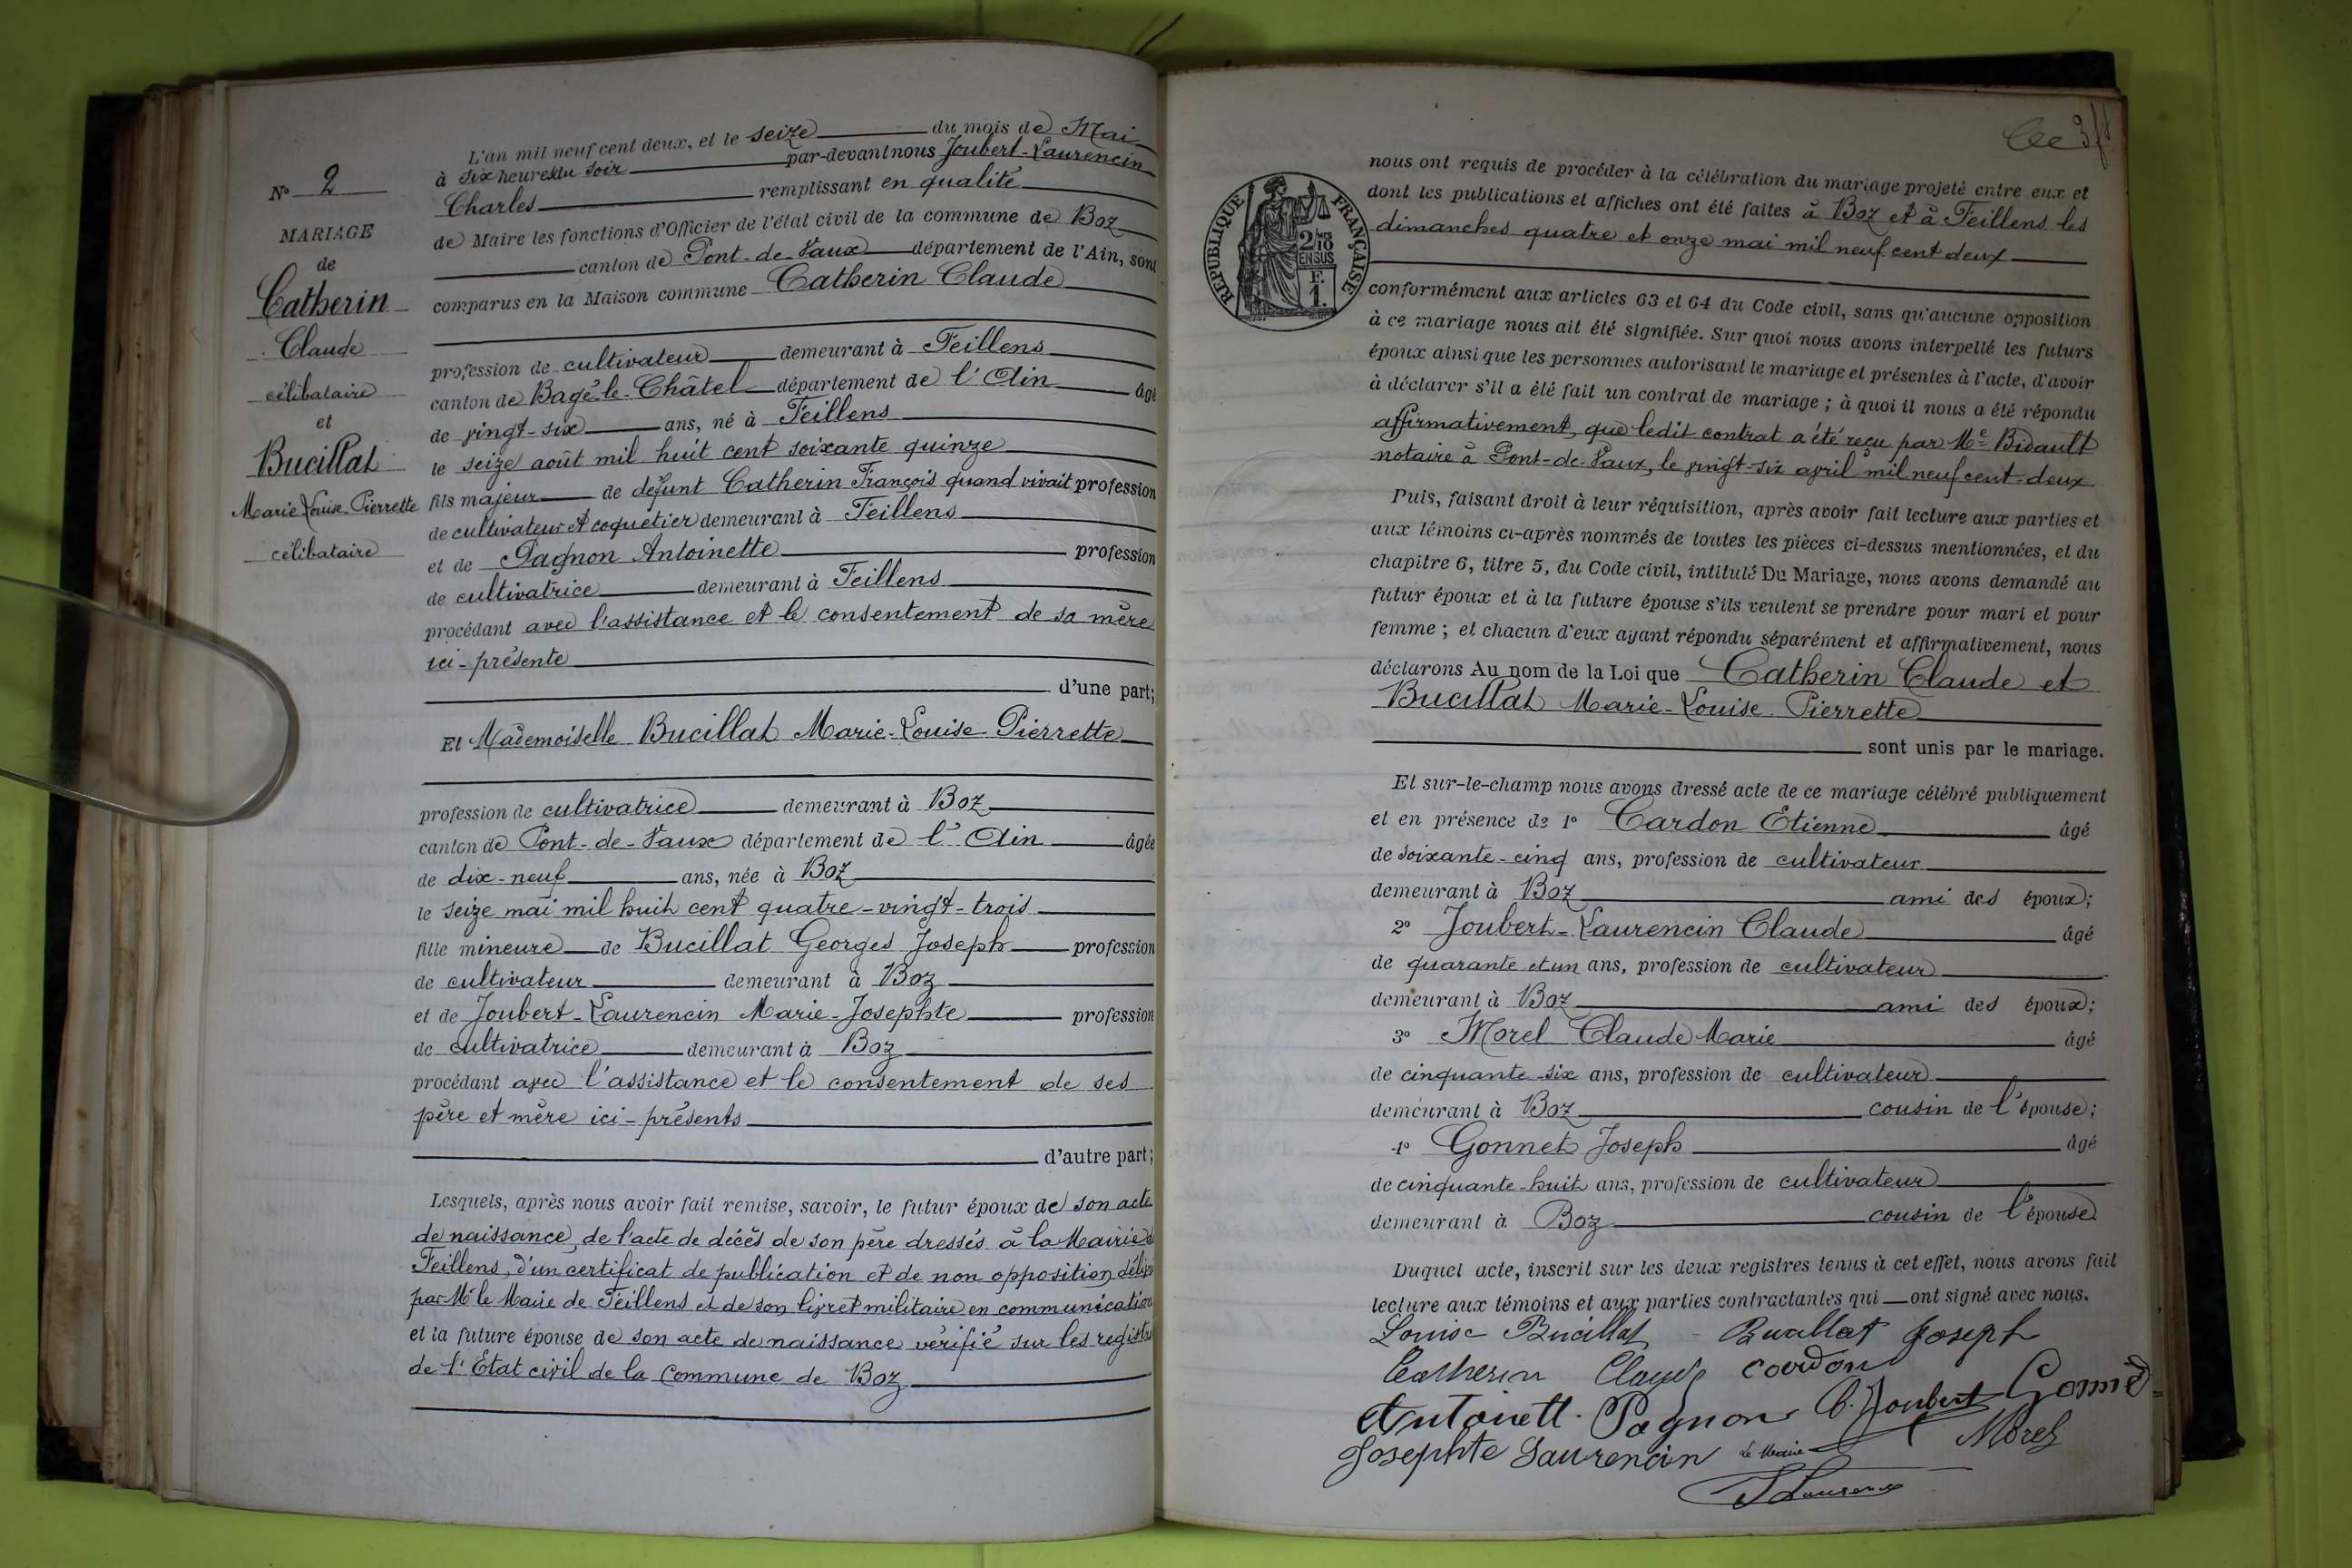 N° 2
MARIAGE
de
Catherin
Claude
célibataire
et
Bucillat
Marie-Louise-Pierrette
célibataire
L'an mil neuf cent deux, et le seize du mois de Mai
à six heures du soir par-devant nous Joubert-Laurencin
Charles remplissant en qualité
de Maire les fonctions d'Officier de l'état civil de la commune de Boz
canton de Pont-de-Vaux département de l'Ain, sont
comparus en la Maison commune Catherin Claude
profession de cultivateur demeurant à Feillens
canton de Bagé-le-Châtel département de l'Ain âgé
de vingt-six ans, né à Feillens
le seize août mil huit cent soixante quinze
fils majeur de défunt Catherin François quand vivait profession
de cultivateur et coquetier demeurant à Feillens
et de Pagnon Antoinette profession
de cultivatrice demeurant à Feillens
procédant avec l'assistance et le consentement de sa mère
ici-présente
d'une part;
Et Mademoiselle Bucillat Marie-Louise-Pierrette
profession de cultivatrice demeurant à Boz
canton de Pont-de-Vaux département de l'Ain âgée
de dix-neuf ans, née à Boz
le seize mai mil huit cent quatre-vingt-trois
fille mineure de Bucillat Georges Joseph profession
de cultivateur demeurant à Boz
et de Joubert-Laurencin Marie-Josephte profession
de cultivatrice demeurant à Boz
procédant avec l'assistance et le consentement de ses
père et mère ici-présents
d'autre part;
Lesquels, après nous avoir fait remise, savoir, le futur époux de son acte
de naissance, de l'acte de décès de son père dressés à la Mairie de
Feillens, d'un certificat de publication et de non opposition déliv
par Mr le Maire de Feillens et de son livret militaire en communication
et la future épouse de son acte de naissance vérifié sur les registr
de l'État civil de la commune de Boz
RÉPUBLIQUE FRANÇAISE
2/10
EN SUS
F.
1.
nous ont requis de procéder à la célébration du mariage projeté entre eux et
dont les publications et affiches ont été faites à Boz et à Feillens les
dimanches quatre et onze mai mil neuf cent deux
conformément aux articles 63 et 64 du Code civil, sans qu'aucune opposition
à ce mariage nous ait été signifiée. Sur quoi nous avons interpellé les futurs
époux ainsi que les personnes autorisant le mariage et présentes à l'acte, d'avoir
à déclarer s'il a été fait un contrat de mariage; à quoi il nous a été répondu
affirmativement, que ledit contrat a été reçu par Me Bidault
notaire à Pont-de-Vaux, le vingt-six avril mil neuf cent-deux
Puis, faisant droit à leur réquisition, après avoir fait lecture aux parties et
aux témoins ci-après nommés de toutes les pièces ci-dessus mentionnées, et du
chapitre 6, titre 5, du Code civil, intitulé Du Mariage, nous avons demandé au
futur époux et à la future épouse s'ils veulent se prendre pour mari et pour
femme; et chacun d'eux ayant répondu séparément et affirmativement, nous
déclarons Au nom de la Loi que Catherin Claude et
Bucillat Marie-Louise-Pierrette
sont unis par le mariage.
Et sur-le-champ nous avons dressé acte de ce mariage célébré publiquement
et en présence de 1° Cardon Étienne âgé
de soixante-cinq ans, profession de cultivateur
demeurant à Boz ami des époux;
2° Joubert-Laurencin Claude âgé
de quarante et un ans, profession de cultivateur
demeurant à Boz ami des époux;
3° Morel Claude Marie âgé
de cinquante-six ans, profession de cultivateur
demeurant à Boz cousin de l'épouse;
4° Gonnet Joseph âgé
de cinquante-huit ans, profession de cultivateur
demeurant à Boz cousin de l'épouse
Duquel acte, inscrit sur les deux registres tenus à cet effet, nous avons fait
lecture aux témoins et aux parties contractantes qui ont signé avec nous.
Louise Bucillat Bucillat Joseph
Catherin Claude Cardon
Antoinett. Pagnon C. Joubert Gonnet
Josephte Laurencin Le Maire Morel